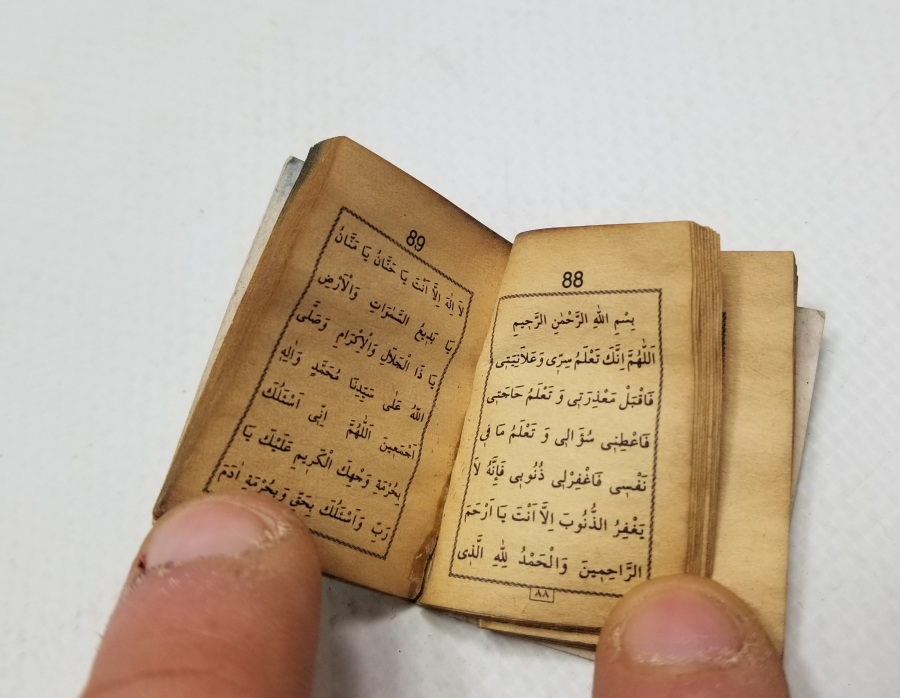 88
بِسْمِ اللهِ الرَّحْمٰنِ الرَّحٖيمِ
اَللّٰهُمَّ اِنَّكَ تَعْلَمُ سِرّٖى وَعَلَانِيَتٖى
فَاقْبَلْ مَعْذِرَتٖى وَ تَعْلَمُ حَاجَتٖى
فَاعْطِنٖى سُؤَالٖى وَ تَعْلَمُ مَا فٖى
نَفْسٖى فَاغْفِرْلٖى ذُنُوبٖى فَاِنَّهُ لَا
يَغْفِرُ الذُّنُوبَ اِلَّا اَنْتَ يَا اَرْحَمَ
الرَّاحِمٖينَ وَالْحَمْدُ لِلّٰهِ الَّذٖى
٨٨
89
لَا اِلٰهَ اِلَّا اَنْتَ يَا حَنَّانُ يَا مَنَّانُ
يَا بَدٖيعُ السَّمٰوَاتِ وَالْاَرْضِ
يَا ذَا الْجَلَالِ وَالْاِكْرَامِ وَصَلَّى
اللهُ عَلٰى سَيِّدِنَا مُحَمَّدٍ وَاٰلِهٖ
اَجْمَعٖينَ اَللّٰهُمَّ اِنّٖى اَسْئَلُكَ
بِحُرْمَةِ وَجْهِكَ الْكَرٖيمِ عَلَيْكَ يَا
رَبِّ وَاَسْئَلُكَ بِحَقِّ وَبِحُرْمَةِ اٰدَمَ